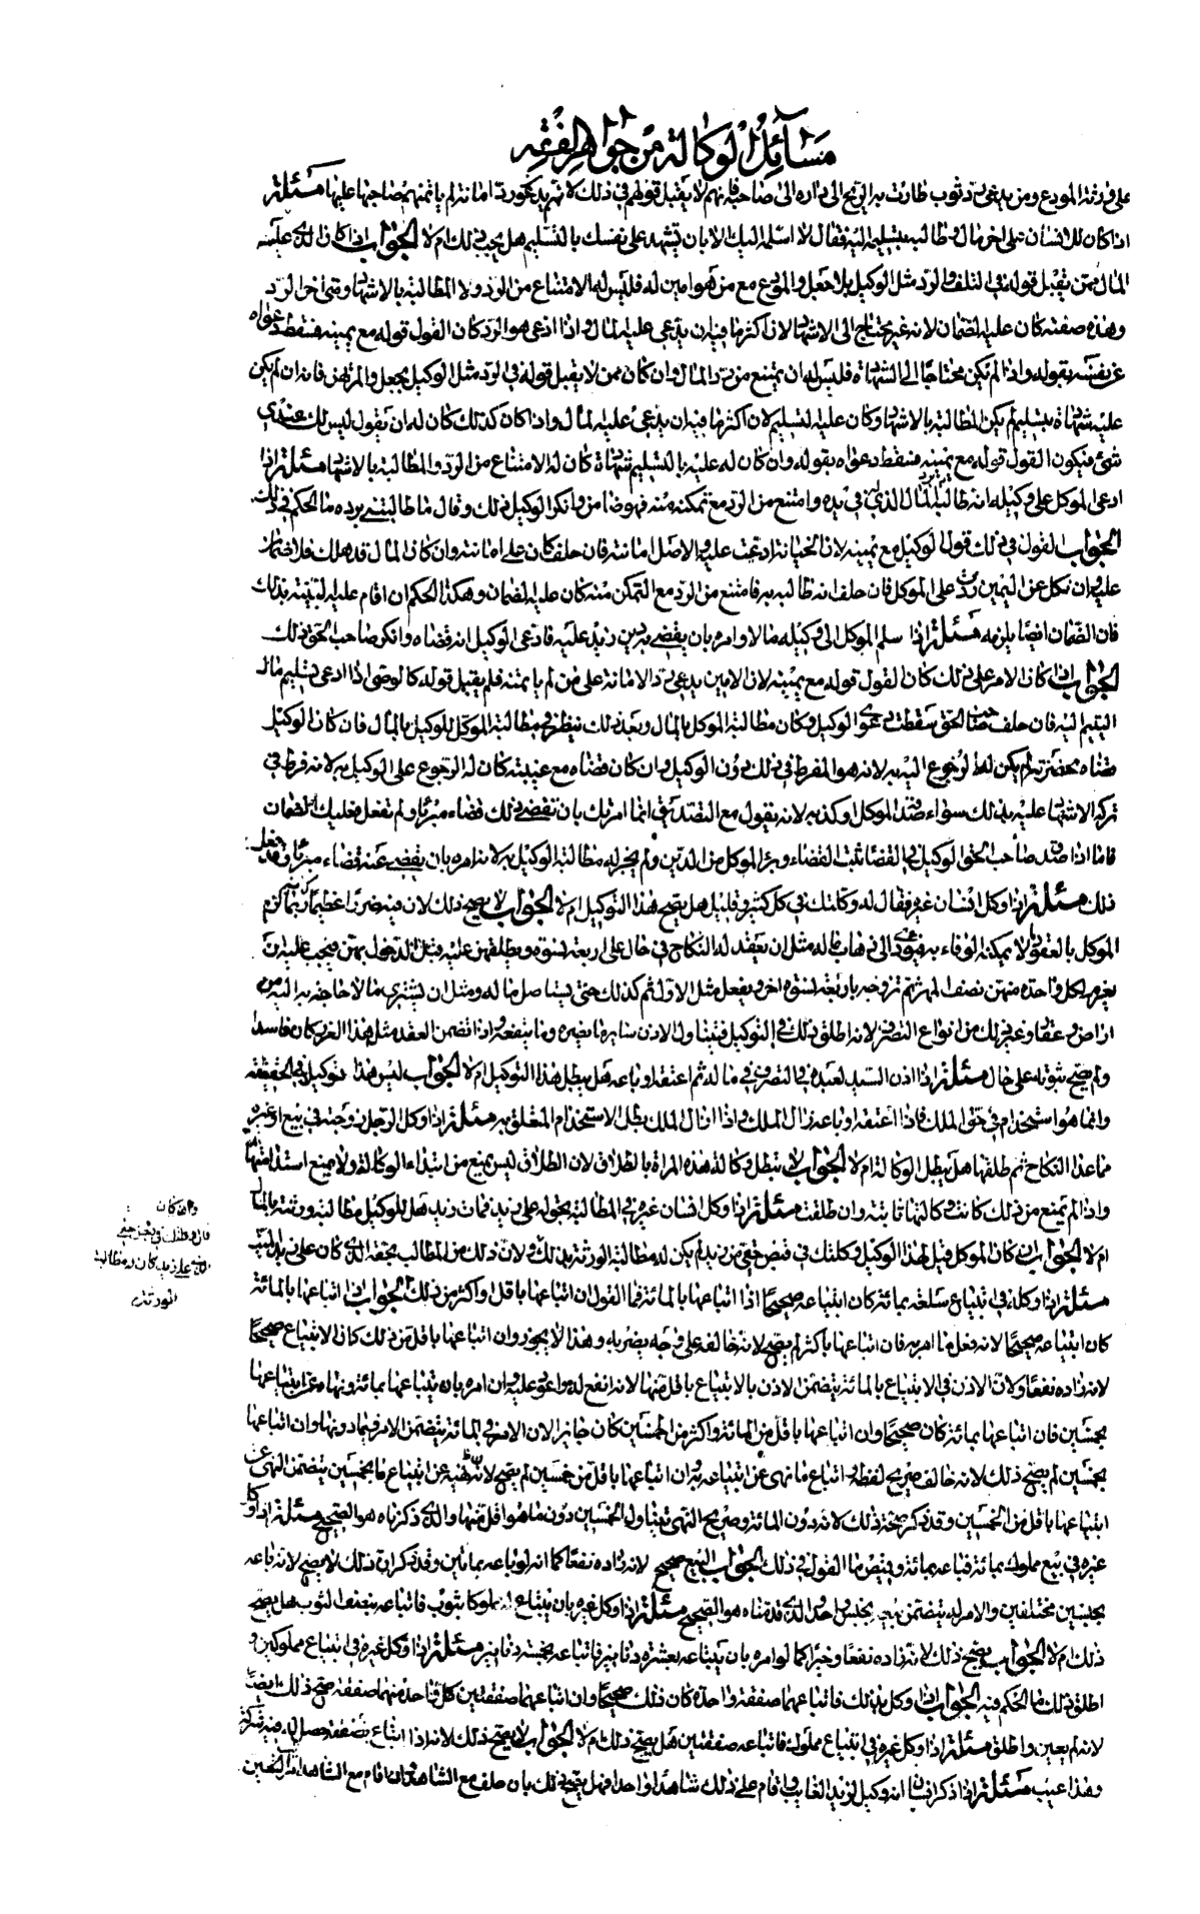 مسائل الوكالة من جواهر الفقه
على ورثة المودع ومن يدعى رد ثوب طارت به الريح الى داره الى صاحبه فانهم لا يقبل قولهم في ذلك لانهم يدعون رد امانة لم يأتمنهم صاحبها عليها مسئلة
اذا كان لانسان على اخر مال وطالبه بتسليمه اليه فقال لا اسلمه اليك الا بان تشهد على نفسك بالتسليم هل يجب ذلك ام لا الجواب اذا كان الذي عليه
المال ممن يقبل قوله في التلف والرد مثل الوكيل بلا جعل والمودع مع من هو امين له فليس له الامتناع من الرد ولا المطالبة بالاشهاد ومتى اخر الرد
وهذه صفته كان عليه الضمان لانه غير محتاج الى الاشهاد لان اكثر ما فيه ان يدعى عليه المال واذا ادعى هو الرد كان القول قوله مع يمينه فتسقط دعواه
عن نفسه بقوله واذا لم يكن محتاجا الى الشهادة فليس له ان يمتنع من رد المال وان كان ممن لا يقبل قوله في الرد مثل الوكيل بجعل والمرتهن فانه ان لم يكن
عليه شهادة بتسليم لم يكن له المطالبة بالاشهاد وكان عليه التسليم لان اكثر ما فيه ان يدعى عليه المال واذا كان كذلك كان له ان يقول ليس لك عندي
شئ فيكون القول قوله مع يمينه فتسقط دعواه بقوله وان كان له عليه بالتسليم شهادة كان له الامتناع من الرد والمطالبة بالاشهاد مسئلة اذا
ادعى الموكل على وكيله انه طالبه برد المال الذي له في يده وامتنع من الرد مع تمكنه منه فهو ضامن وانكر الوكيل ذلك وقال ما طالبتني برده ما الحكم في ذلك
الجواب القول في ذلك قول الوكيل مع يمينه لان الخيانة ادعيت عليه والاصل امانته فان حلف كان على امانته وان كان المال قد هلك فلا ضمان
عليه وان نكل عن اليمين ردت على الموكل فان حلف انه طالبه به فامتنع من الرد مع التمكن منه كان عليه الضمان وهكذا الحكم ان اقام عليه البينة بذلك
فان الضمان ايضا يلزمه مسئلة اذا سلم الموكل الى وكيله مالا وامره بان يقضى به دين زيد عليه فادعى الوكيل انه قضاه وانكر صاحب الحق ذلك
الجواب اذا كان الامر على ذلك كان القول قوله مع يمينه لان الامين يدعى رد الامانة على من لم يأتمنه فلم يقبل قوله كالوصى اذا ادعى تسليم مال
اليتيم اليه فان حلف صاحب الحق سقطت دعوى الوكيل وكان مطالبة الموكل بالمال وبعد ذلك ينظر في مطالبة الموكل للوكيل بالمال فان كان الوكيل
قضاه بحضرته لم يكن له الرجوع اليه به لانه هو المفرط في ذلك دون الوكيل وان كان قضاه مع غيبته كان له الرجوع على الوكيل به لانه فرط في
تركه الاشهاد عليه بذلك سواء صدقه الموكل او كذبه لانه يقول مع التصديق انما امرتك بان تقضى ذلك قضاء مبرئا ولم تفعل فعليك الضمان
فاما اذا صدق صاحب الحق الوكيل في القضا ثبت القضاء وبرئ الموكل من الدين ولم يجز له مطالبة الوكيل به لانه امره بان يقضى عنه قضاء مبرئا وقد فعل
ذلك مسئلة اذا وكل انسان غيره فقال له وكلتك في كل كثير وقليل هل يصح هذا التوكيل ام لا الجواب لا يصح ذلك لان فيه ضررا عظيما لانه ربما لزم
الموكل بالعقود ما لا يمكنه الوفاء به فيؤدى الى ذهاب ماله مثل ان يعقد له النكاح في حال على اربعة نسوة ويطلقهن عليه قبل الدخول بهن فيجب عليه ان
يغرم لكل واحدة منهن نصف المهر ثم تزوجه باربعة نسوة اخر ويفعل مثل الاول ثم كذلك حتى يستاصل ماله ومثل ان يشترى ما لا حاجة به اليه من
اراض وعقار وغير ذلك من انواع التصرف لانه اطلق ذلك في التوكيل فيتناول الاذن سائر ما يضره وما ينفعه واذا تضمن العقد مثل هذا الغرر كان فاسدا
ولم يصح ثبوته على حال مسئلة اذا اذن السيد لعبده في التصرف في ماله ثم اعتقه او باعه هل يبطل هذا التوكيل ام لا الجواب ليس هذا توكيل في الحقيقة
وانما هو استخدام في حق الملك فاذا اعتقه او باعه زال الملك واذا زال الملك بطل الاستخدام المتعلق به مسئلة اذا وكل الرجل زوجته في بيع او غيره
مما عدا النكاح ثم طلقها هل يبطل الوكالة ام لا الجواب لا تبطل وكالة هذه المراة بالطلاق لان الطلاق ليس يمنع من ابتداء الوكالة ولا يمنع استدامتها
واذا لم يمنع من ذلك كانت وكالتها ثابتة وان طلقت مسئلة اذا وكل انسان غيره في المطالبة بحق له على زيد فمات زيد هل للوكيل مطالبة ورثته بالمال
ام لا الجواب ان كان الموكل قال لهذا الوكيل وكلتك في قبض حقي من زيد لم يكن له مطالبة الورثة بذلك لان ذلك من المطالب بحقه الذي كان على زيد الميت
مسئلة اذا وكله في ابتياع سلعة بمائة كان ابتياعه صحيحا اذا ابتاعها بالمائة فما القول ان ابتاعها باقل او اكثر من ذلك الجواب اذا ابتاعها بالمائة
كان ابتياعه صحيحا لانه فعل ما امر به فان ابتاعها باكثر لم يصح لانه خالفه على وجه يضر به وهذا لا يجوز وان ابتاعها باقل من ذلك كان الابتياع صحيحا
لانه زاده نفعا ولان الاذن في الابتياع بالمائة يتضمن الاذن بالابتياع باقل منها لانه انفع له واعود عليه وان امره بان يبتاعها بمائة ونهاه عن ابتياعها
بخمسين فان ابتاعها بمائة كان صحيحا وان ابتاعها باقل من المائة واكثر من الخمسين كان جايزا لان الامر في المائة يتضمن الامر فيما دونها وان ابتاعها
بخمسين لم يصح ذلك لانه خالف صريح لفظه وابتاع ما نهى عن ابتياعه به وان ابتاعها باقل من خمسين لم يصح لان نهيه عن ابتياعها بخمسين يتضمن النهى عن
ابتياعها باقل من الخمسين وقد ذكر صحة ذلك لانه دون المائة وصريح النهى تناول الخمسين دون ما هو اقل منها والذي ذكرناه هو الصحيح مسئلة اذا وكل
غيره في بيع مملوك بمائة فباعه بمائة وقميص ما القول في ذلك الجواب البيع صحيح لانه زاده نفعا كما انه لو باعه بماتين وقد ذكر ان ذلك لا يصح لانه باعه
بجنسين مختلفين والامر له يتضمن بيعه بجنس واحد والذي قدمناه هو الصحيح مسئلة اذا وكل غيره بان يبتاع له مملوكا بثوب فابتاعه بنصف الثوب هل يصح
ذلك ام لا الجواب يصح ذلك لانه زاده نفعا وخيرا كما لو امره بان يبتاعه بعشرة دنانير فابتاعه بخمسة دنانير مسئلة اذا وكل غيره في ابتياع مملوكين و
اطلق ذلك ما الحكم فيه الجواب اذا وكل بذلك فابتاعهما صفقة واحدة كان ذلك صحيحا وان ابتاعهما صفقتين كل واحدة منهما صفقة صح ذلك ايضا
لانه لم يعين واطلق مسئلة اذا وكل غيره في ابتياع مملوك فابتاعه صفقتين هل يصح ذلك ام لا الجواب لا يصح ذلك لانه اذا ابتاع بصفقة حصل له فيه شركة
وهذا عيب مسئلة اذا ذكر انسان انه وكيل لزيد الغايب واقام على ذلك شاهدا واحدا فهل يصح ذلك بان حلف مع الشاهد وان اقام مع الشاهد امراتين
وان كان
قال وكلتك في قبض حقي
الذي على زيد كان له مطالبة
الورثة